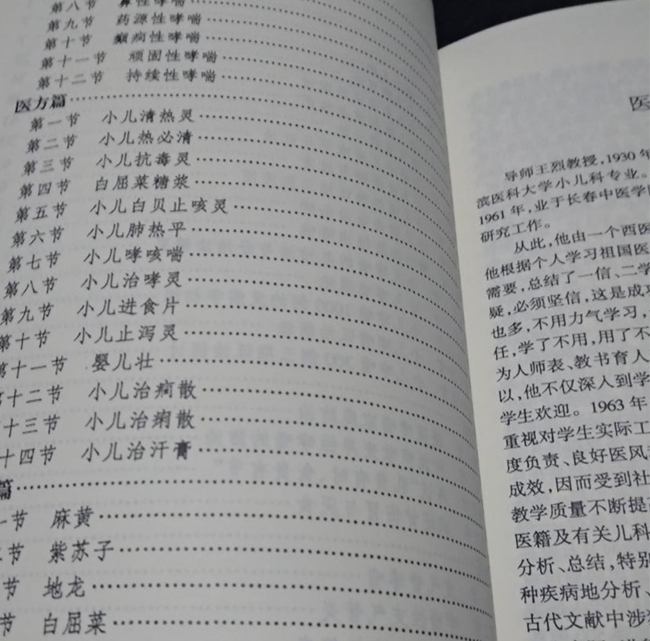 第八节 鼻性哮喘
第九节 药源性哮喘
第十节 癫痫性哮喘
第十一节 顽固性哮喘
第十二节 持续性哮喘
医方篇
第一节 小儿清热灵
第二节 小儿热必清
第三节 小儿抗毒灵
第四节 白屈菜糖浆
第五节 小儿白贝止咳灵
第六节 小儿肺热平
第七节 小儿哮咳喘
第八节 小儿治哮灵
第九节 小儿进食片
第十节 小儿止泻灵
第十一节 婴儿壮
十二节 小儿治痫散
十三节 小儿治痢散
十四节 小儿治汗膏
篇
一节 麻黄
节 紫苏子
节 地龙
节 白屈菜
医
导师王烈教授，1930年
滨医科大学小儿科专业。
1961年，业于长春中医学
研究工作。
从此，他由一个西医
他根据个人学习祖国医
需要，总结了一信、二学
疑，必须坚信，这是成功
也多，不用力气学习，
任，学了不用，用了不
为人师表、教书育人
以，他不仅深入到学
学生欢迎。1963年
重视对学生实际工
度负责、良好医风
成效，因而受到社
教学质量不断提
医籍及有关儿科
分析、总结，特别
种疾病地分析、
古代文献中涉